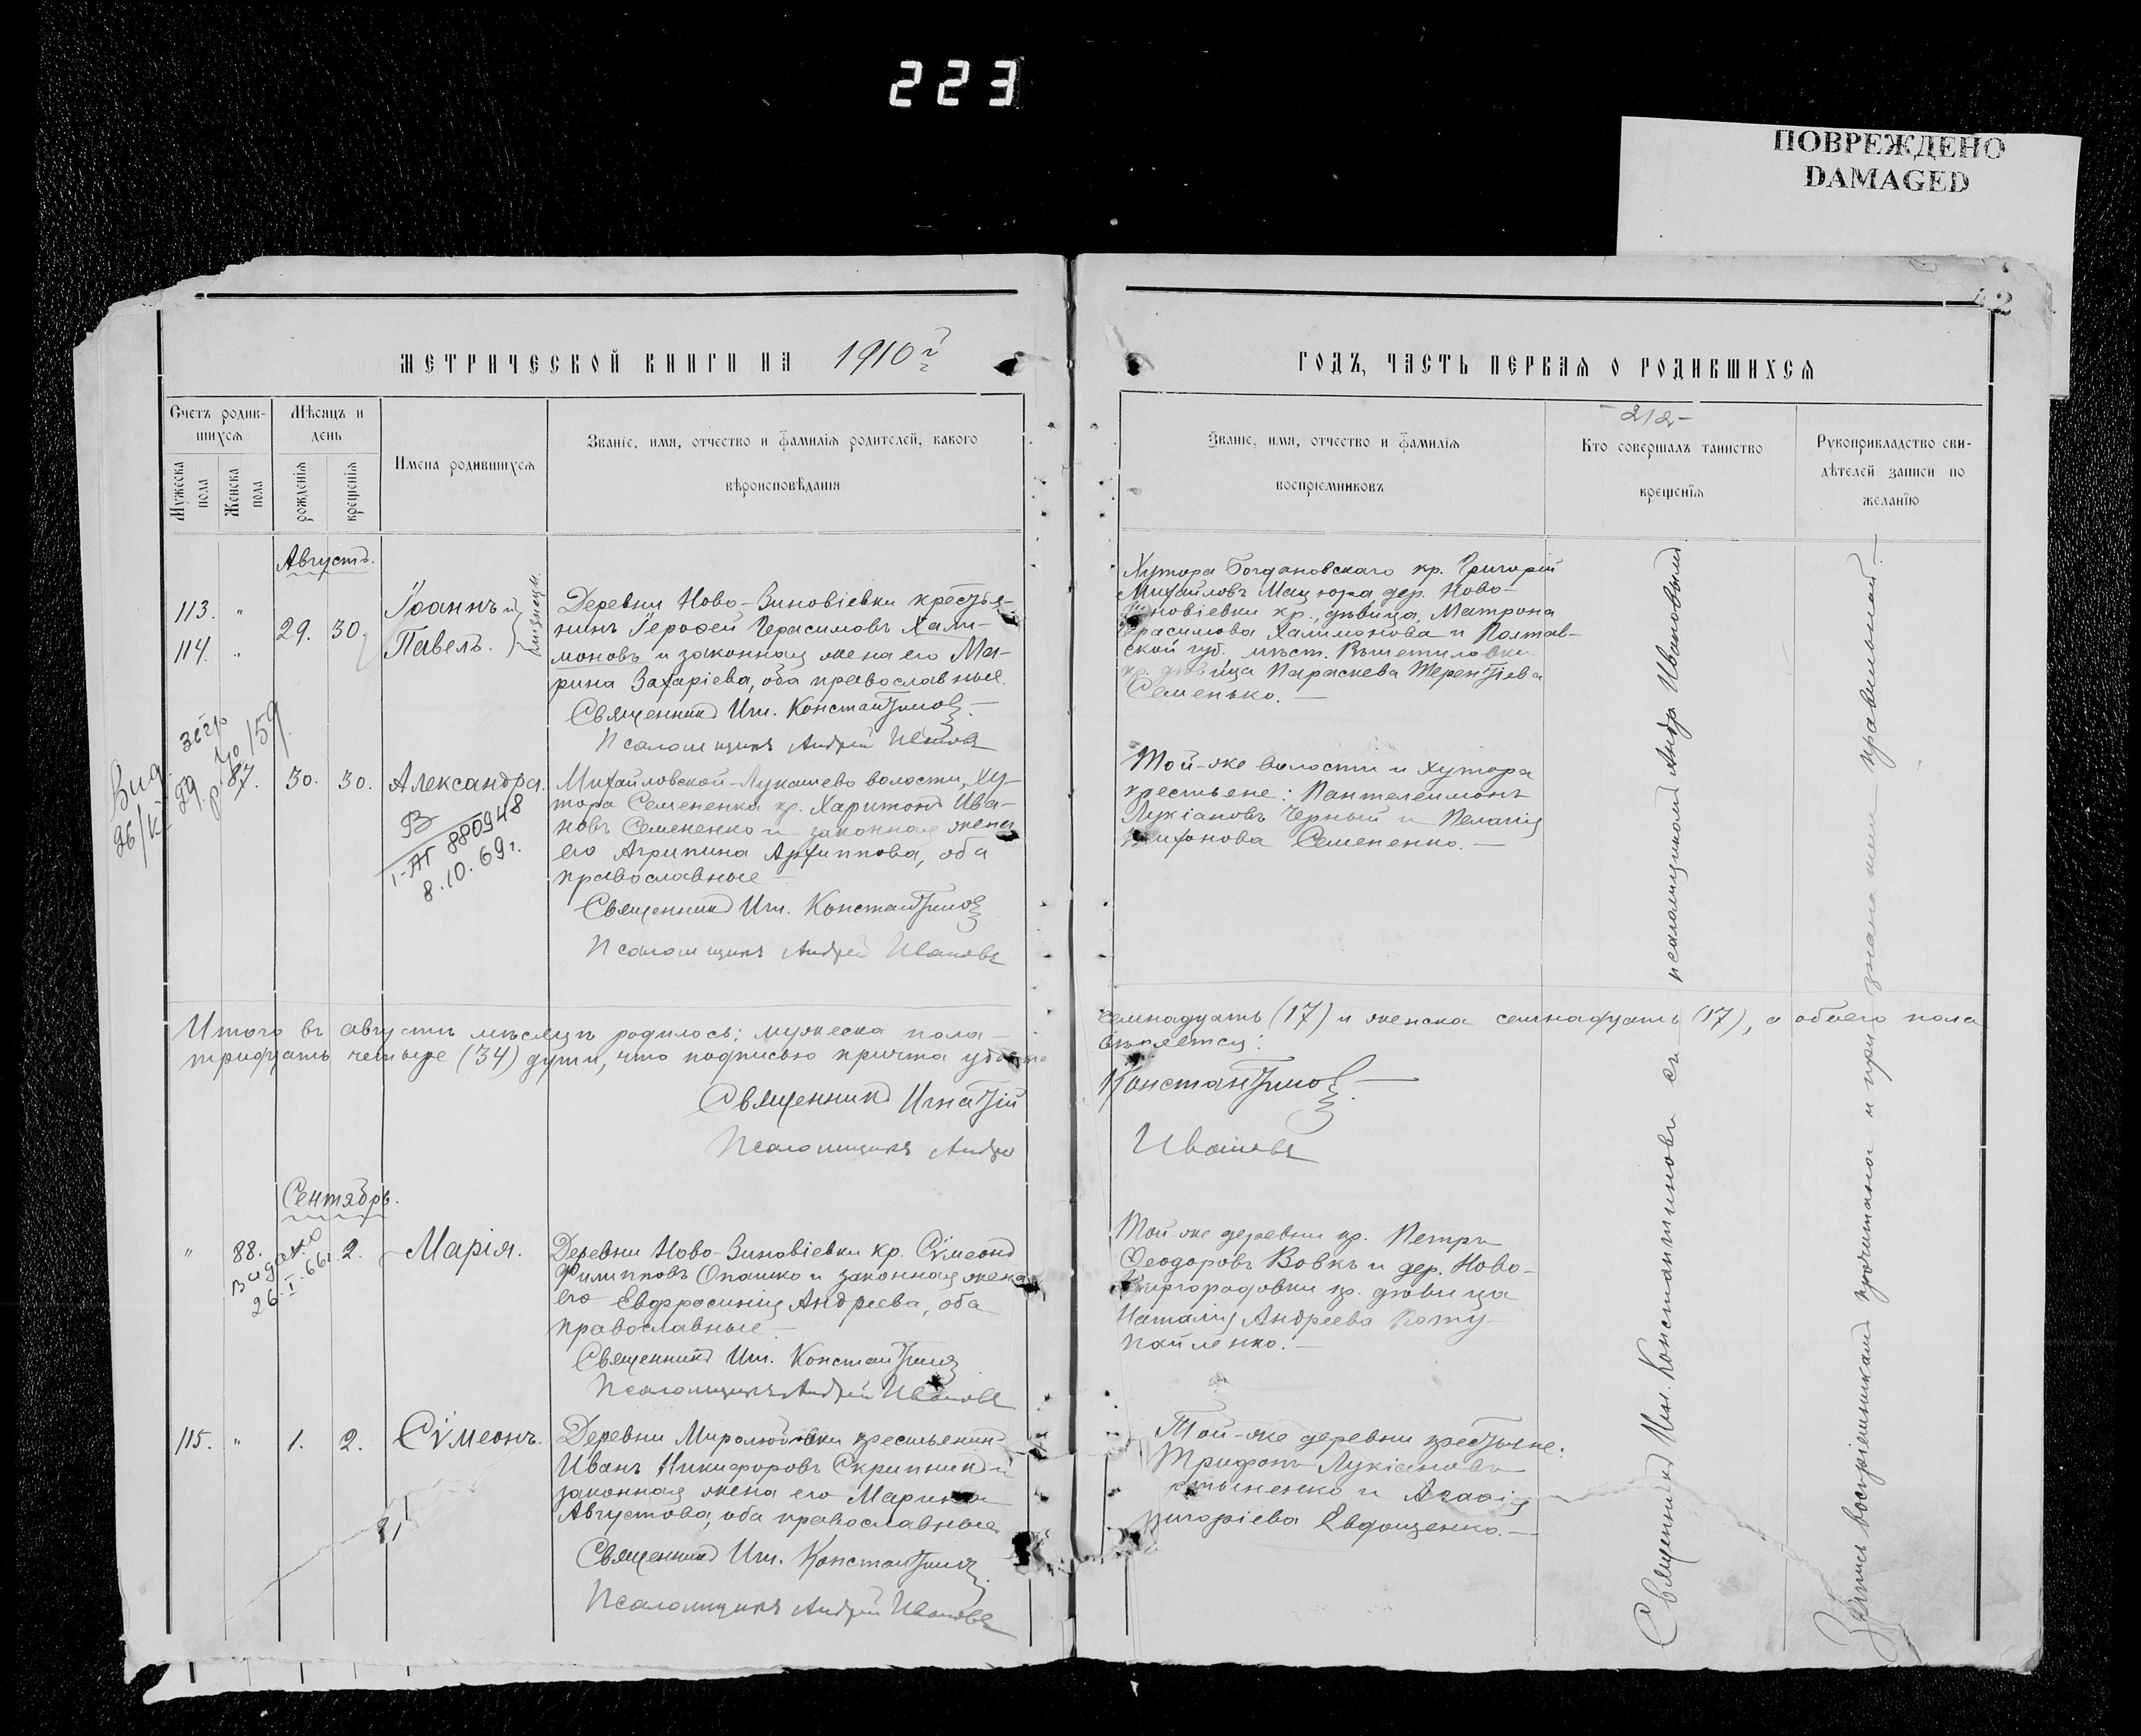 223
ПОВРЕЖДЕНО
DAMAGED
42
МЕТРИЧЕСКОЙ КНИГИ НА 1910 г.
Счетъ родив-
шихся
Мѣсяцъ и
день
Имена родившихся
Званіе, имя, отчество и фамилія родителей, какого
вѣроисповѣданія
Мужеска пола
Женска пола
рожденія
крещенія
Августъ.
113. "
114. "
29. 30.
Іоаннъ и
Павелъ.
близнецы.
Деревни Ново-Зиновіевки крестья-
нинъ Іерофей Герасимовъ Хали-
моновъ и законная жена его Ма-
рина Захаріева, оба православные.
Священникъ Игн. Константиновъ
Псаломщикъ Андрей Ивановъ
87. 30. 30. Александра.
В
I-АГ 880948
8.10.69г.
Михайловской-Лукашево волости, ху-
тора Семененка кр. Харитонъ Ива-
новъ Семененко и законная жена
его Агрипина Архиппова, оба
православные
Священникъ Игн. Константиновъ
Псаломщикъ Андрей Ивановъ
Итого въ августѣ мѣсяцѣ родилось: мужеска пола
тридцать четыре (34) души, что подписью причта удосто
Священникъ Игнатій
Псаломщикъ Андрей
Сентябрь.
" 88. 2. Марія.
видано
26.I.66г.
Деревни Ново-Зиновіевки кр. Сѵмеонъ
Филипповъ Опашко и законная жена
его Евфросинія Андреева, оба
православные
Священникъ Игн. Константиновъ
Псаломщикъ Андрей Ивановъ
115. " 1. 2. Сѵмеонъ.
Деревни Миролюбовки крестьянинъ
Иванъ Никифоровъ Скрипникъ и
законная жена его Марина
Августова, оба православные
Священникъ Игн. Константиновъ
Псаломщикъ Андрей Ивановъ
ГОДЪ, ЧАСТЬ ПЕРВАЯ О РОДИВШИХСЯ
Званіе, имя, отчество и фамилія
воспріемниковъ
-212-
Кто совершалъ таинство
крещенія
Рукоприкладство сви-
дѣтелей записи по
желанію
Хутора Богдановскаго кр. Григорій
Михайловъ Мацюра, дер. Ново-
новіевки кр., дѣвица, Матрона
ерасимова Халимонова и Полтав-
ской губ. мѣст.
кр. дѣвица Параскева Терентіева
Семенько.
Той-же волости и хутора
крестьяне: Пантелеимонъ
Лукіановъ Черный и Пелагія
Семененко.
семнадцать (17) и женска семнадцать (17), а обоего пола
вѣряется:
Константиновъ
Ивановъ
Той же деревни кр. Петръ
Ѳеодоровъ Вовкъ и дер. Ново-
кр. дѣвица
Наталія Андреева
Той-же деревни крестьяне:
Трифонъ Лукіановъ
и Агафія
ригоріева Евдощенко.
Священникъ Игн. Константиновъ съ псаломщикомъ Андр. Ивановымъ
Запись воспріемниками прочитана и признана ими правильной